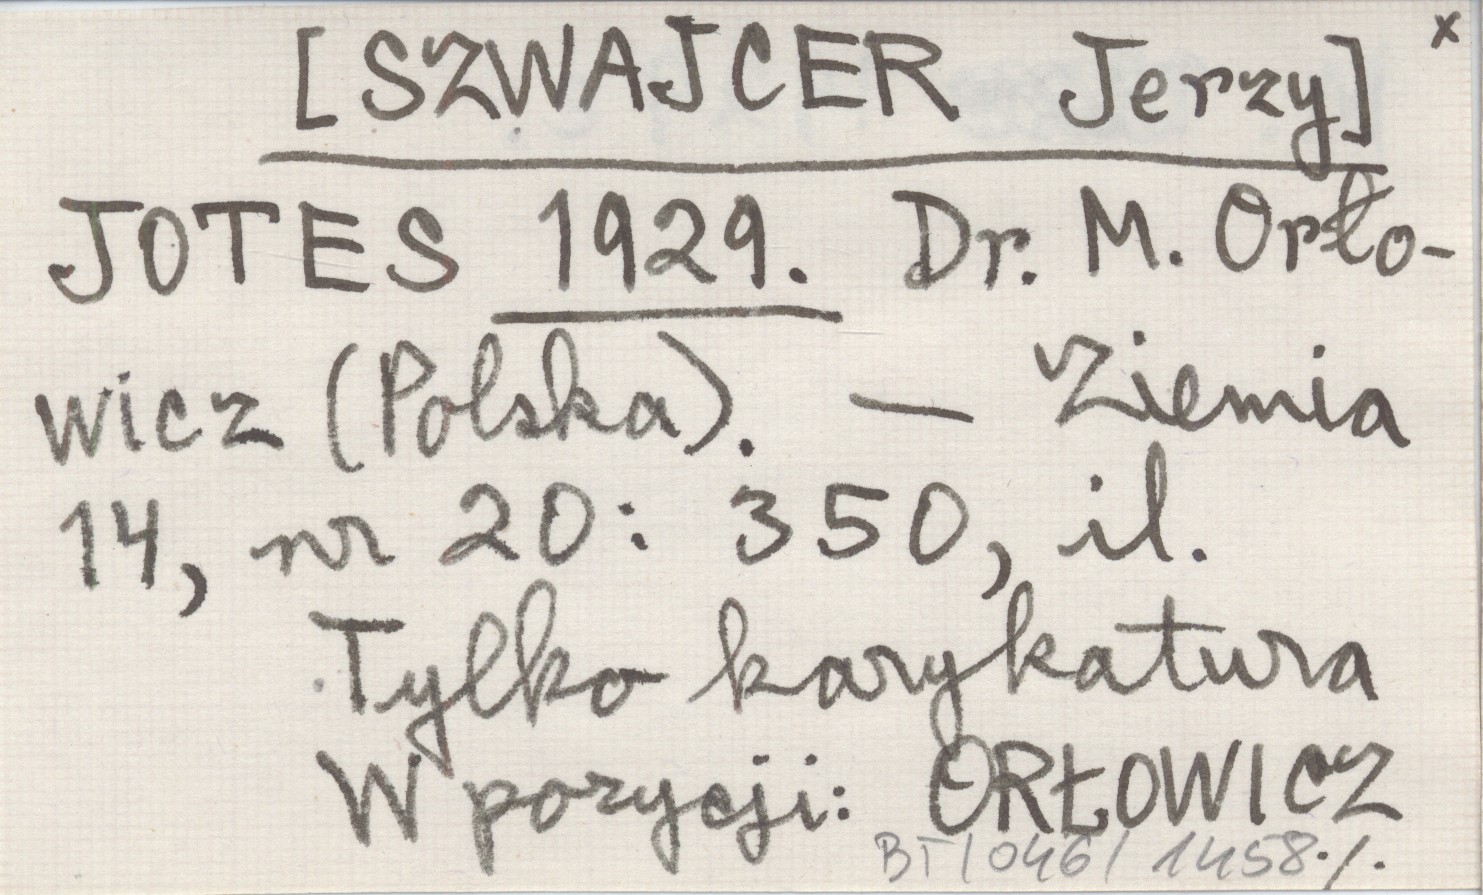 [SZWAJCER Jerzy] x
JOTES 1929. Dr. M. Orło-
wicz (Polska). — Ziemia
14, nr 20: 350, il.
Tylko karykatura
W pozycji: ORŁOWICZ
BT/046/1458./.